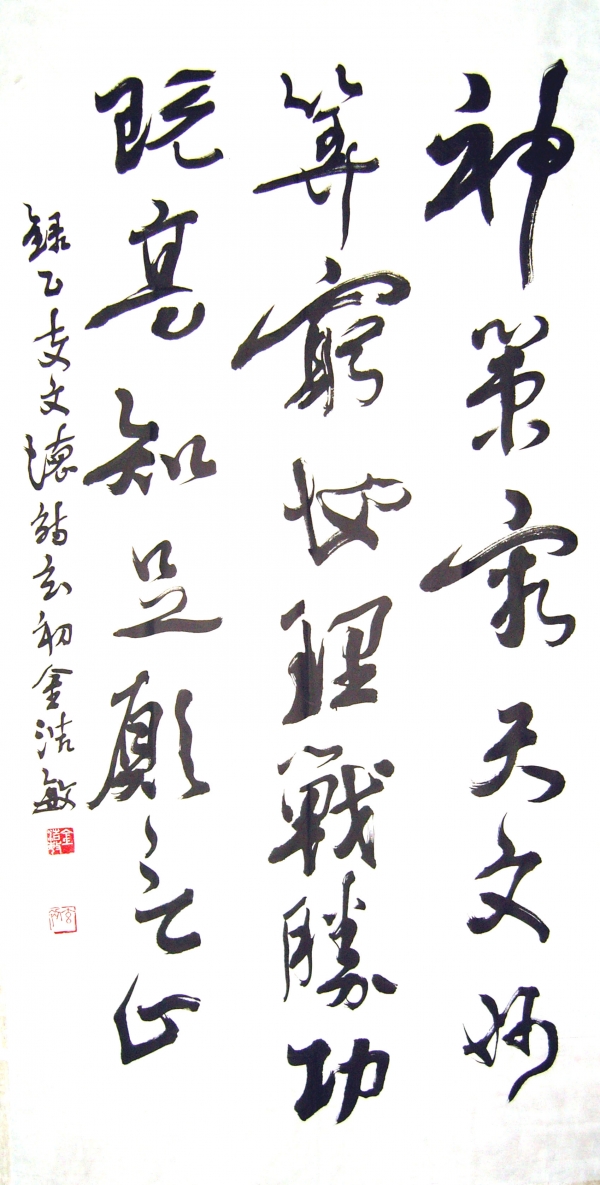 神策究天文妙
算窮地理戰勝功
既高知足願云止
錄乙支文德詩玄初金浩敏